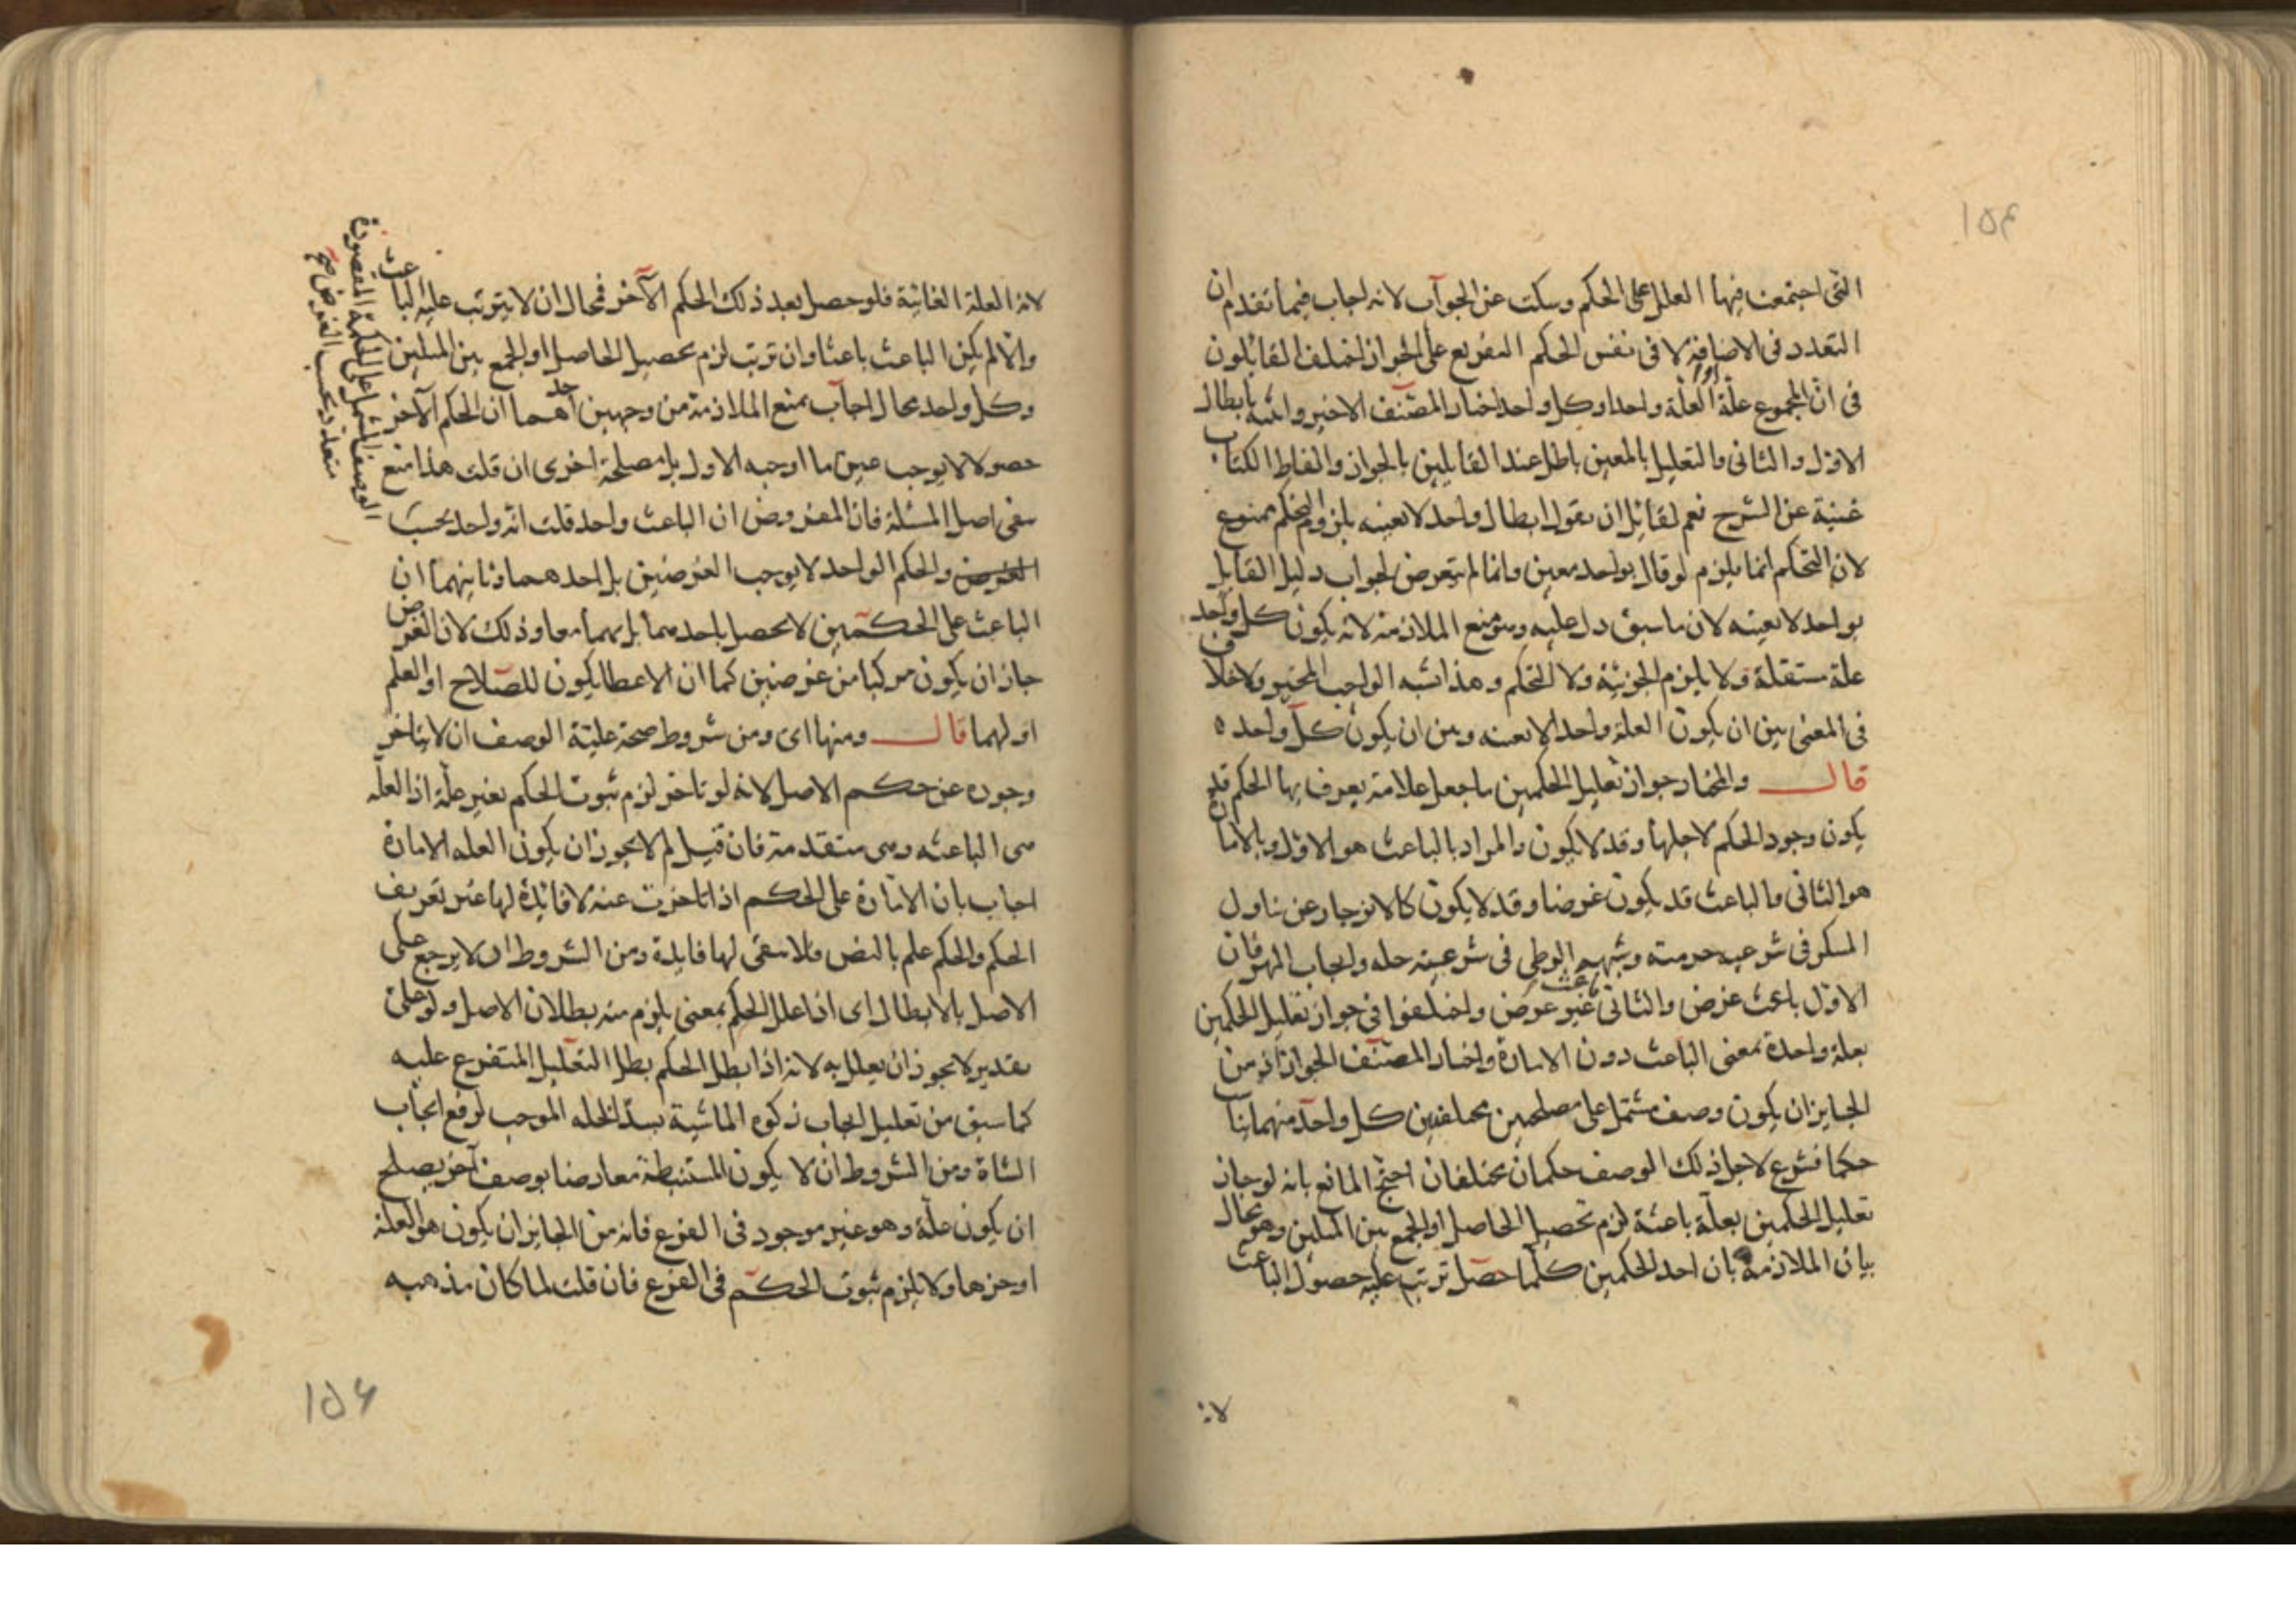 ١٥٤
التى اجتمعت فيها العلل على الحكم وسكت عن الجواب لانه اجاب فيما تقدم ان
التعدد فى الاضافة لا فى نفس الحكم التفريع على الجواز اختلف القائلون
فى ان المجموع علة او العلة واحد او كل واحد اختار المصنف الاخير واثبته بابطال
الاول والثانى والتعليل بالمعين باطل عند القايلين بالجواز والفاظ الكتاب
غنية عن الشرح نعم لقائل ان يقول ابطال واحد لا بعينه بلزوم التحكم ممنوع
لان التحكم انما يلزم لو قال بواحد معين وانما لم يتعرض لجواب دليل القايل
بواحد لا بعينه لان ما سبق دل عليه وهو منع الملازمة لانه يكون كل واحد
علة مستقلة ولا يلزم الجزئية ولا التحكم وهذا شبه الواجب المخير ولا خلاف
فى المعنى بين ان يكون العلة واحدا لا بعينه وبين ان يكون كل واحد ه
قال والمختار جواز تعليل الحكمين ما جعل علامة يعرف بها الحكم قد
يكون وجود الحكم لاجلها وقد لا يكون والمراد بالباعث هو الاول وبالامارة
هو الثانى والباعث قد يكون غرضا وقد لا يكون كالانزجار عن تناول
المسكر فى شرعيه حرمته وشبهه الوطى فى شرعيته حله وايجاب المهر فان
الاول باعث غرض والثانى باعث غير غرض واختلفوا فى جواز تعليل الحكمين
بعلة واحدة بمعنى الباعث دون الامارة واختار المصنف الجواز اذ من
الجايز ان يكون وصف مشتمل على مصلحتين مختلفتين كل واحد منهما يناسب
حكما فشرع لاجل ذلك الوصف حكمان مختلفان احتج المانع بانه لو جاز
تعليل الحكمين بعلة باعثة لزم تحصيل الحاصل او الجمع بين المثلين وهو محال
بيان الملازمة بان احد الحكمين كلما حصل ترتب عليه حصول الباعث
لانه
لانه العلة الغائية فلو حصل بعد ذلك الحكم الآخر فمحال ان لا يترتب عليه الباعث
والا لم يكن الباعث باعثا وان ترتب لزم تحصيل الحاصل او الجمع بين المثلين
وكل واحد محال اجاب بمنع الملازمة من وجهين احدهما ان الحكم الآخر
حصولا لا يوجب عين ما اوجبه الاول بل مصلحة اخرى ان قلت هذا منع
ينفى اصل المسئلة فان المفروض ان الباعث واحد قلت انه واحد بحسب
الوصف المشتمل على الحكمة المقصودة
متعدد بحسب الغرض صح
الغرض والحكم الواحد لا يوجب الغرضين بل احدهما وثانيهما ان
الباعث على الحكمين لا يحصل باحدهما بل بهما معا وذلك لان الغرض
جاز ان يكون مركبا من غرضين كما ان الاعطا يكون للصلاح او العلم
او لهما قال ومنها اى ومن شروط صحة علية الوصف ان لا يتاخر
وجوده عن حكم الاصل لانه لو تاخر لزم ثبوت الحكم بغير علة اذ العلة
هى الباعثه وهى متقدمة فان قيل لم لا يجوز ان يكون العله الامارة
اجاب بان الامارة على الحكم اذا تاخرت عنه لا فائدة لها غير تعريف
الحكم والحكم علم بالنص فلا يبقى لها فايدة ومن الشروط ان لا يرجع على
الاصل بالابطال اى اذا علل الحكم بمعنى يلزم منه بطلان الاصل ولو على
تقدير لا يجوز ان يعلل به لانه اذا بطل الحكم بطل التعليل المتفرع عليه
كما سبق من تعليل ايجاب زكوه الماشية بسد الخله الموجب لرفع ايجاب
الشاة ومن الشروط ان لا يكون المستنبطة معارضا بوصف آخر يصلح
ان يكون علة وهو غير موجود فى الفرع فانه من الجايز ان يكون هو العلة
او جزءها ولا يلزم ثبوت الحكم فى الفرع فان قلت لما كان مذهبه
١٥۶